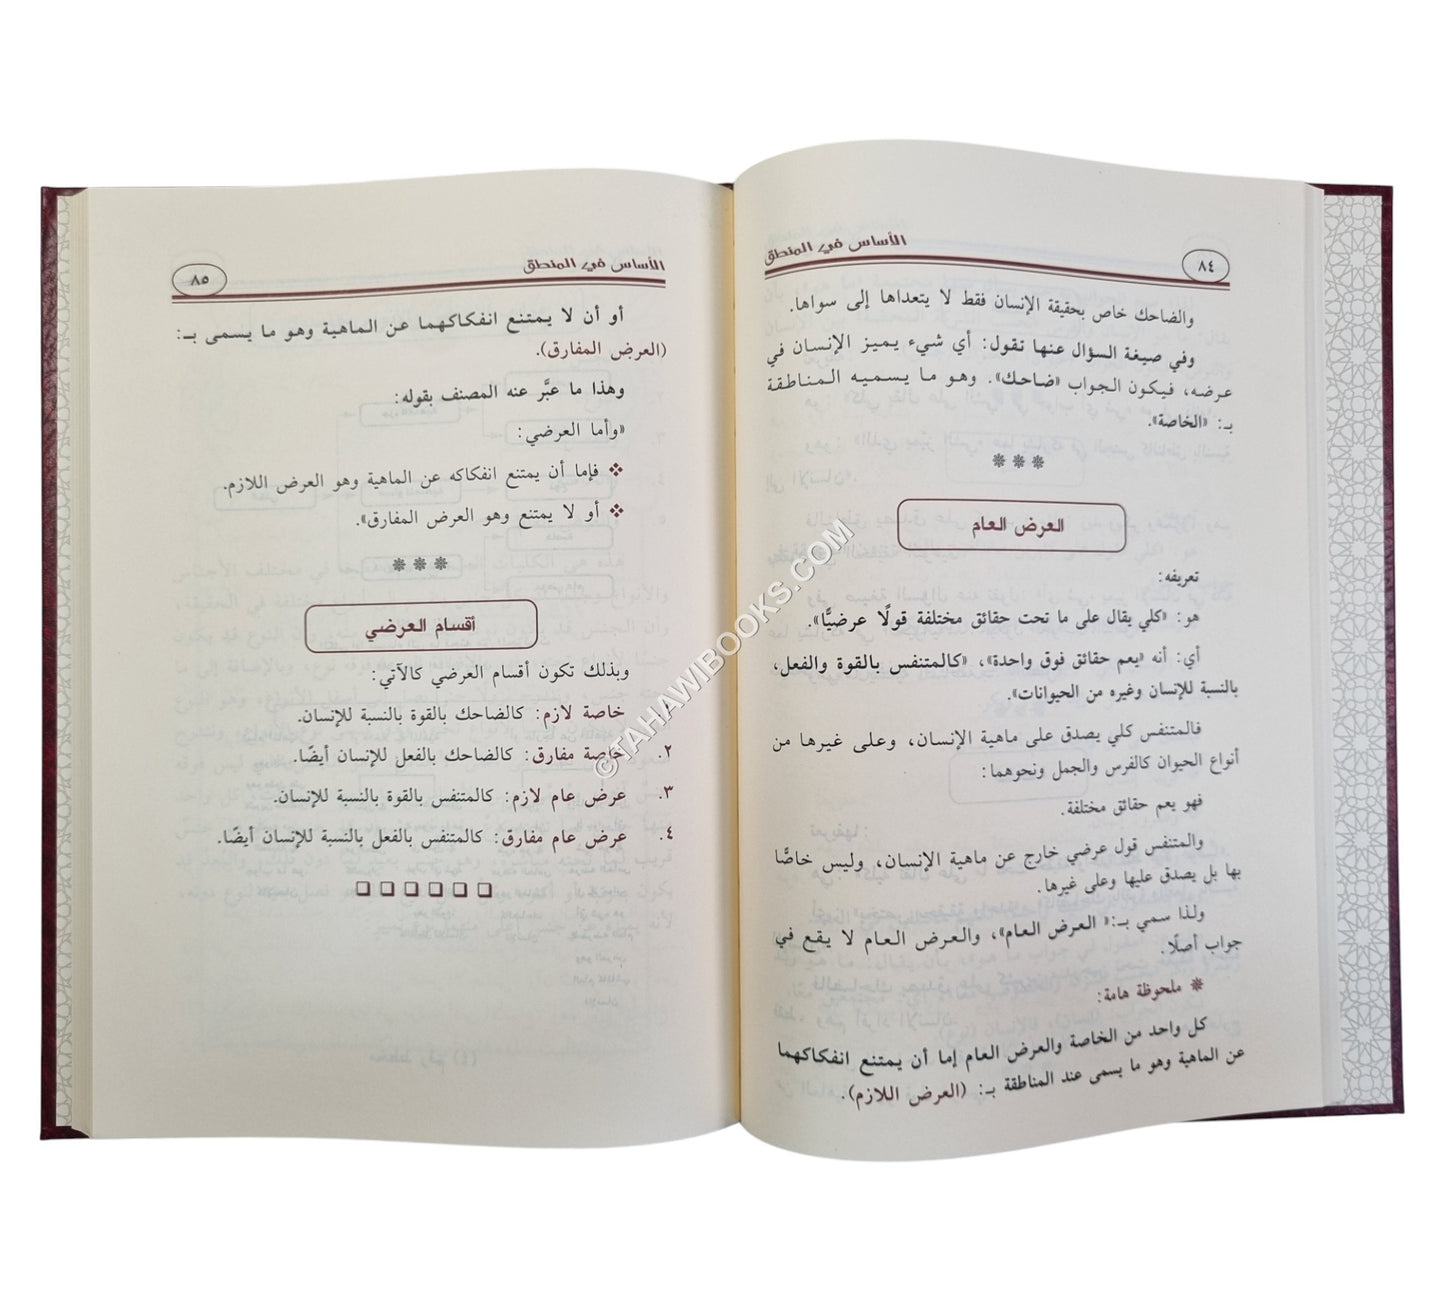 الأساس في المنطق
٨٤
والضاحك خاص بحقيقة الإنسان فقط لا يتعداها إلى سواها.
وفي صيغة السؤال عنها تقول: أي شيء يميز الإنسان في
عرضه، فيكون الجواب «ضاحك». وهو ما يسميه المناطقة
بـ: «الخاصة».
***
العرض العام
تعريفه:
هو: «كلي يقال على ما تحت حقائق مختلفة قولًا عرضيًّا».
أي: أنه «يعم حقائق فوق واحدة»، «كالمتنفس بالقوة والفعل،
بالنسبة للإنسان وغيره من الحيوانات».
فالمتنفس كلي يصدق على ماهية الإنسان، وعلى غيرها من
أنواع الحيوان كالفرس والجمل ونحوهما:
فهو يعم حقائق مختلفة.
والمتنفس قول عرضي خارج عن ماهية الإنسان، وليس خاصًّا
بها بل يصدق عليها وعلى غيرها.
ولذا سمي بـ:« العرض العام»، والعرض العام لا يقع في
جواب أصلًا.
* ملحوظة هامة:
كل واحد من الخاصة والعرض العام إما أن يمتنع انفكاكهما
عن الماهية وهو ما يسمى عند المناطقة بـ: (العرض اللازم).
الأساس في المنطق
٨٥
أو أن لا يمتنع انفكاكهما عن الماهية وهو ما يسمى بـ:
(العرض المفارق).
وهذا ما عبَّر عنه المصنف بقوله:
«وأما العرضي:
❖ فإما أن يمتنع انفكاكه عن الماهية وهو العرض اللازم.
❖ أو لا يمتنع وهو العرض المفارق».
***
أقسام العرضي
وبذلك تكون أقسام العرضي كالآتي:
خاصة لازم: كالضاحك بالقوة بالنسبة للإنسان.
٢. خاصة مفارق: كالضاحك بالفعل للإنسان أيضًا.
٣. عرض عام لازم: كالمتنفس بالقوة بالنسبة للإنسان.
٤. عرض عام مفارق: كالمتنفس بالفعل بالنسبة للإنسان أيضًا.
❑ ❑ ❑ ❑ ❑ ❑
©TAHAWIBOOKS.COM